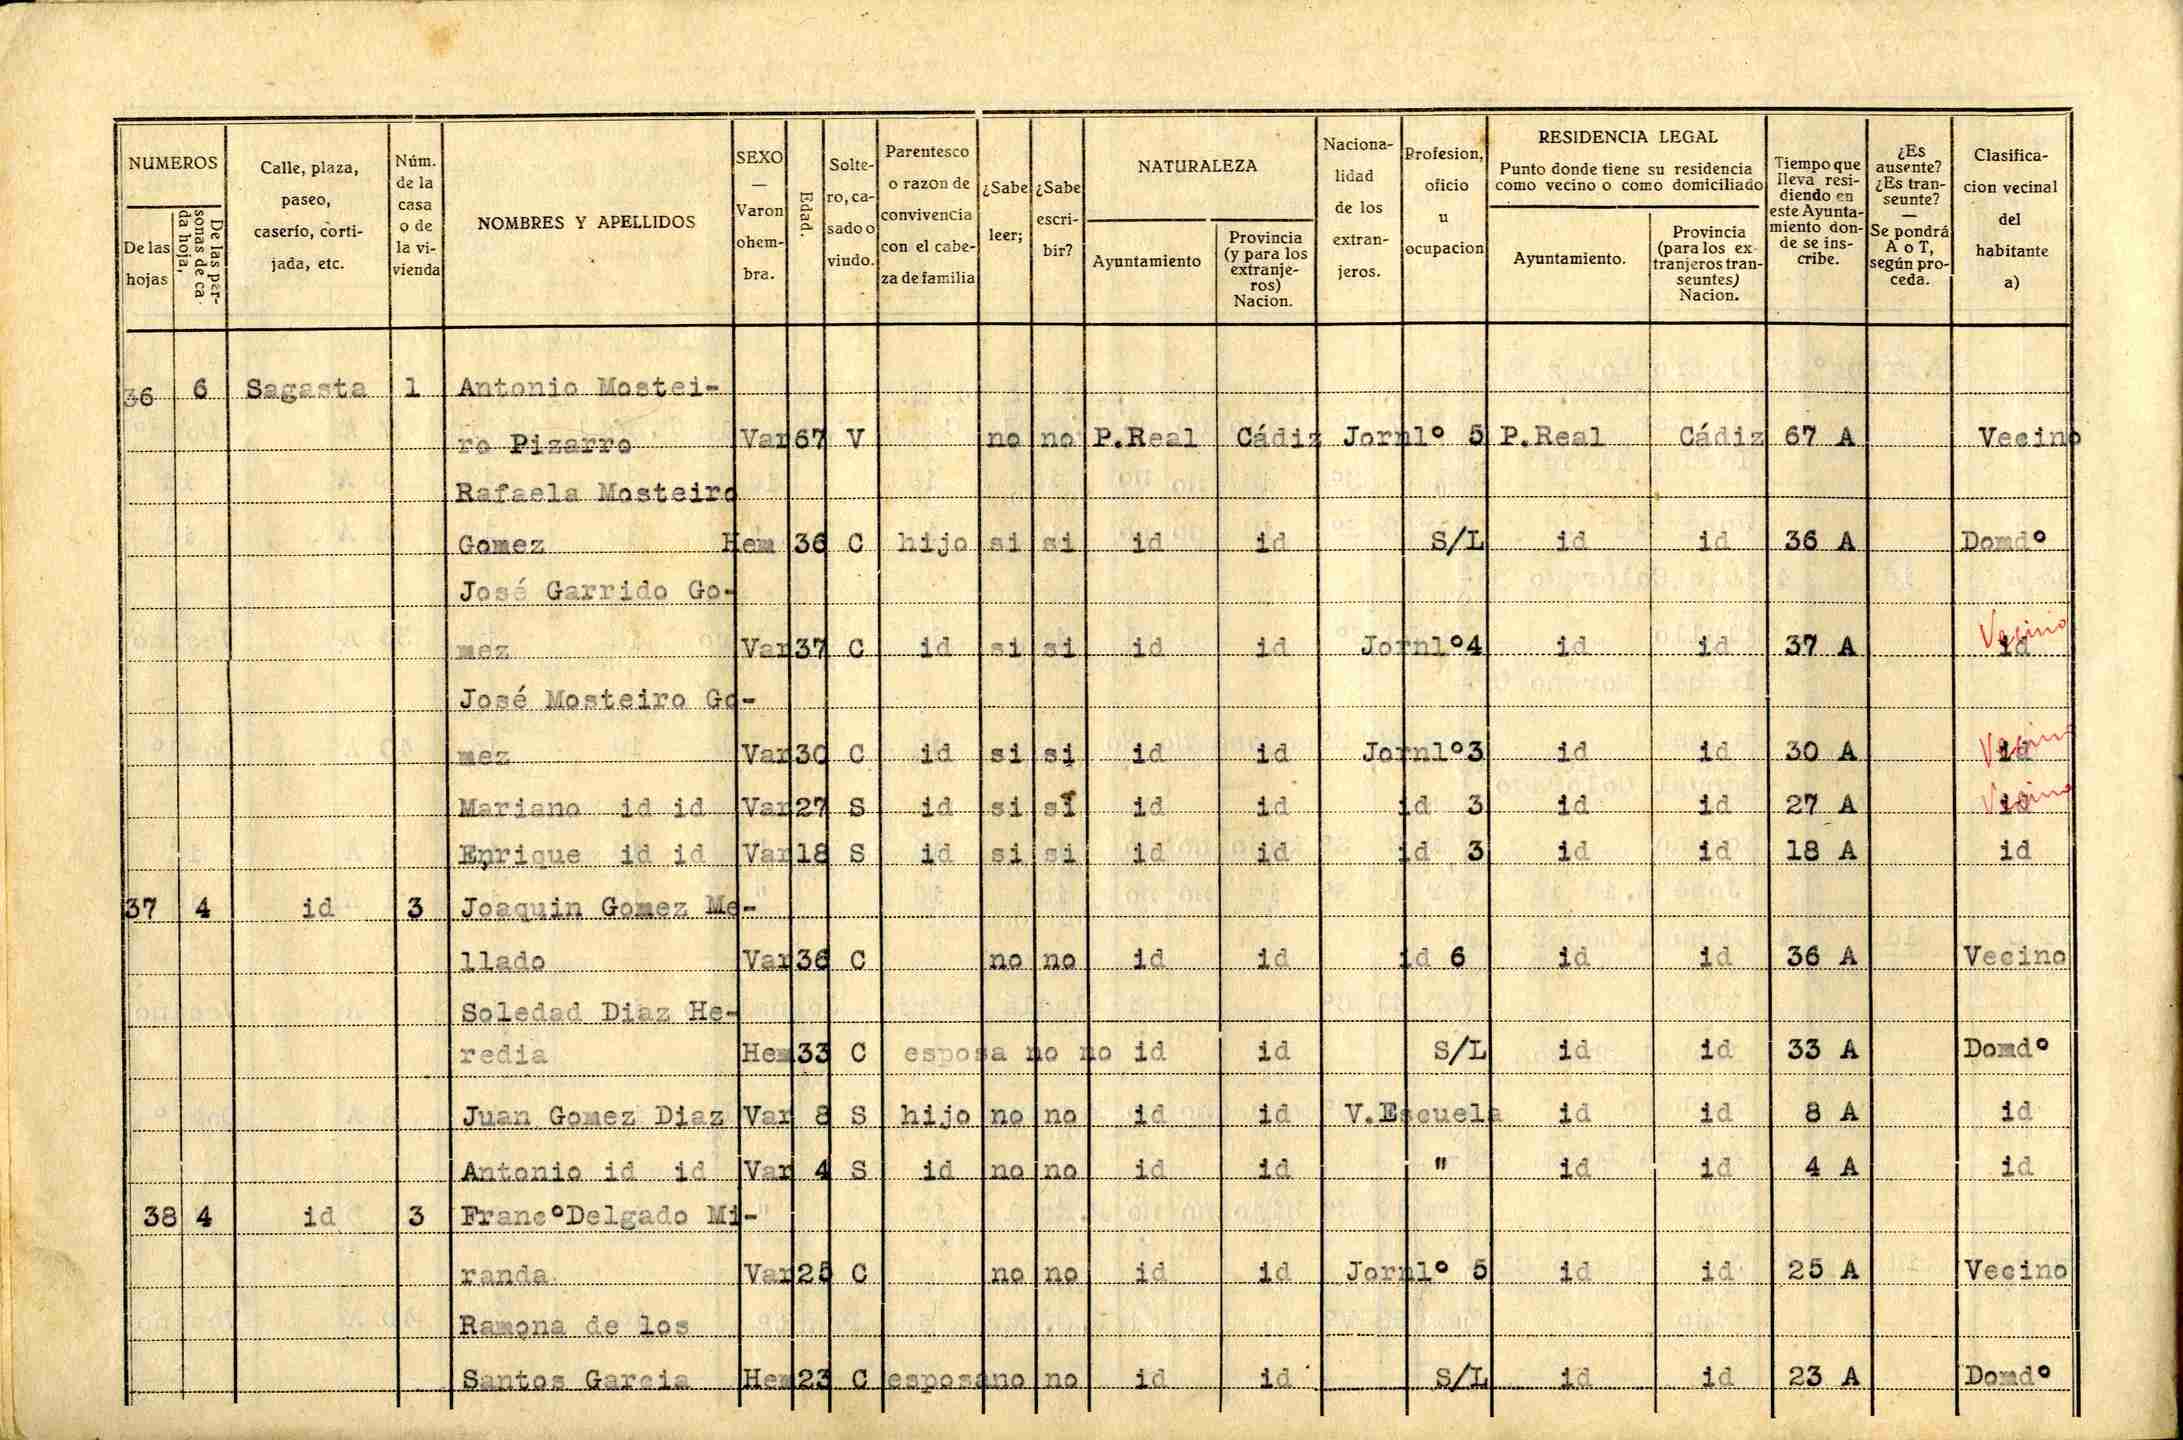 NUMEROS
De las hojas
De las per-sonas de ca-da hoja,
Calle, plaza, paseo, caserío, corti-jada, etc.
Núm. de la casa o de la vi-vienda
NOMBRES Y APELLIDOS
SEXO — Varon ohem-bra.
Edad.
Solte-ro, ca-sado o viudo.
Parentesco o razon de convivencia con el cabe-za de familia
¿Sabe leer;
¿Sabe escri-bir?
NATURALEZA
Ayuntamiento
Provincia (y para los extranje-ros) Nacion.
Naciona-lidad de los extran-jeros.
Profesion, oficio u ocupacion
RESIDENCIA LEGAL
Punto donde tiene su residencia como vecino o como domiciliado
Ayuntamiento.
Provincia (para los ex-tranjeros tran-seuntes) Nacion.
Tiempo que lleva resi-diendo en este Ayunta-miento don-de se ins-cribe.
¿Es ausente? ¿Es tran-seunte? — Se pondrá A o T, según pro-ceda.
Clasifica-cion vecinal del habitante a)
36 6 Sagasta 1 Antonio Mostei-
ro Pizarro Var 67 V no no P.Real Cádiz Jornlº 5 P.Real Cádiz 67 A Vecino
Rafaela Mosteiro
Gomez Hem 36 C hijo si si id id S/L id id 36 A Domdº
José Garrido Go-
mez Var 37 C id si si id id Jornlº4 id id 37 A id Vecino
José Mosteiro Go-
mez Var 30 C id si si id id Jornlº3 id id 30 A id Vecino
Mariano id id Var 27 S id si si id id id 3 id id 27 A id Vecino
Enrique id id Var 18 S id si si id id id 3 id id 18 A id
37 4 id 3 Joaquin Gomez Me-
llado Var 36 C no no id id id 6 id id 36 A Vecino
Soledad Diaz He-
redia Hem 33 C esposa no no id id S/L id id 33 A Domdº
Juan Gomez Diaz Var 8 S hijo no no id id V.Escuela id id 8 A id
Antonio id id Var 4 S id no no id id " id id 4 A id
38 4 id 3 FrancºDelgado Mi-
randa Var 25 C no no id id Jornlº 5 id id 25 A Vecino
Ramona de los
Santos Garcia Hem 23 C esposa no no id id S/L id id 23 A Domdº